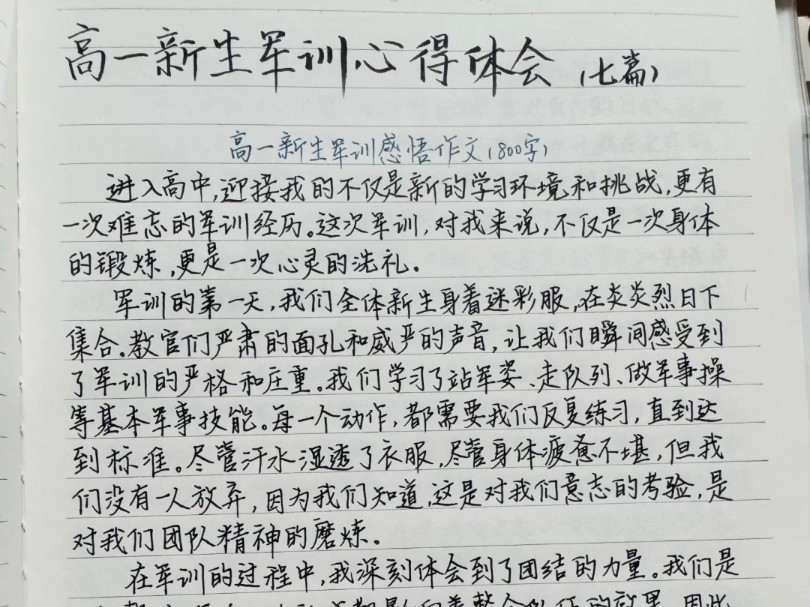 高一新生军训心得体会（七篇）
高一新生军训感悟作文（800字）
进入高中，迎接我的不仅是新的学习环境和挑战，更有
一次难忘的军训经历。这次军训，对我来说，不仅是一次身体
的锻炼，更是一次心灵的洗礼。
军训的第一天，我们全体新生身着迷彩服，在炎炎烈日下
集合。教官们严肃的面孔和威严的声音，让我们瞬间感受到
了军训的严格和庄重。我们学习了站军姿、走队列、做军事操
等基本军事技能。每一个动作，都需要我们反复练习，直到达
到标准。尽管汗水湿透了衣服，尽管身体疲惫不堪，但我
们没有一人放弃，因为我们知道，这是对我们意志的考验，是
对我们团队精神的磨炼。
在军训的过程中，我深刻体会到了团结的力量。我们是
影响着整个队伍的效果，因此